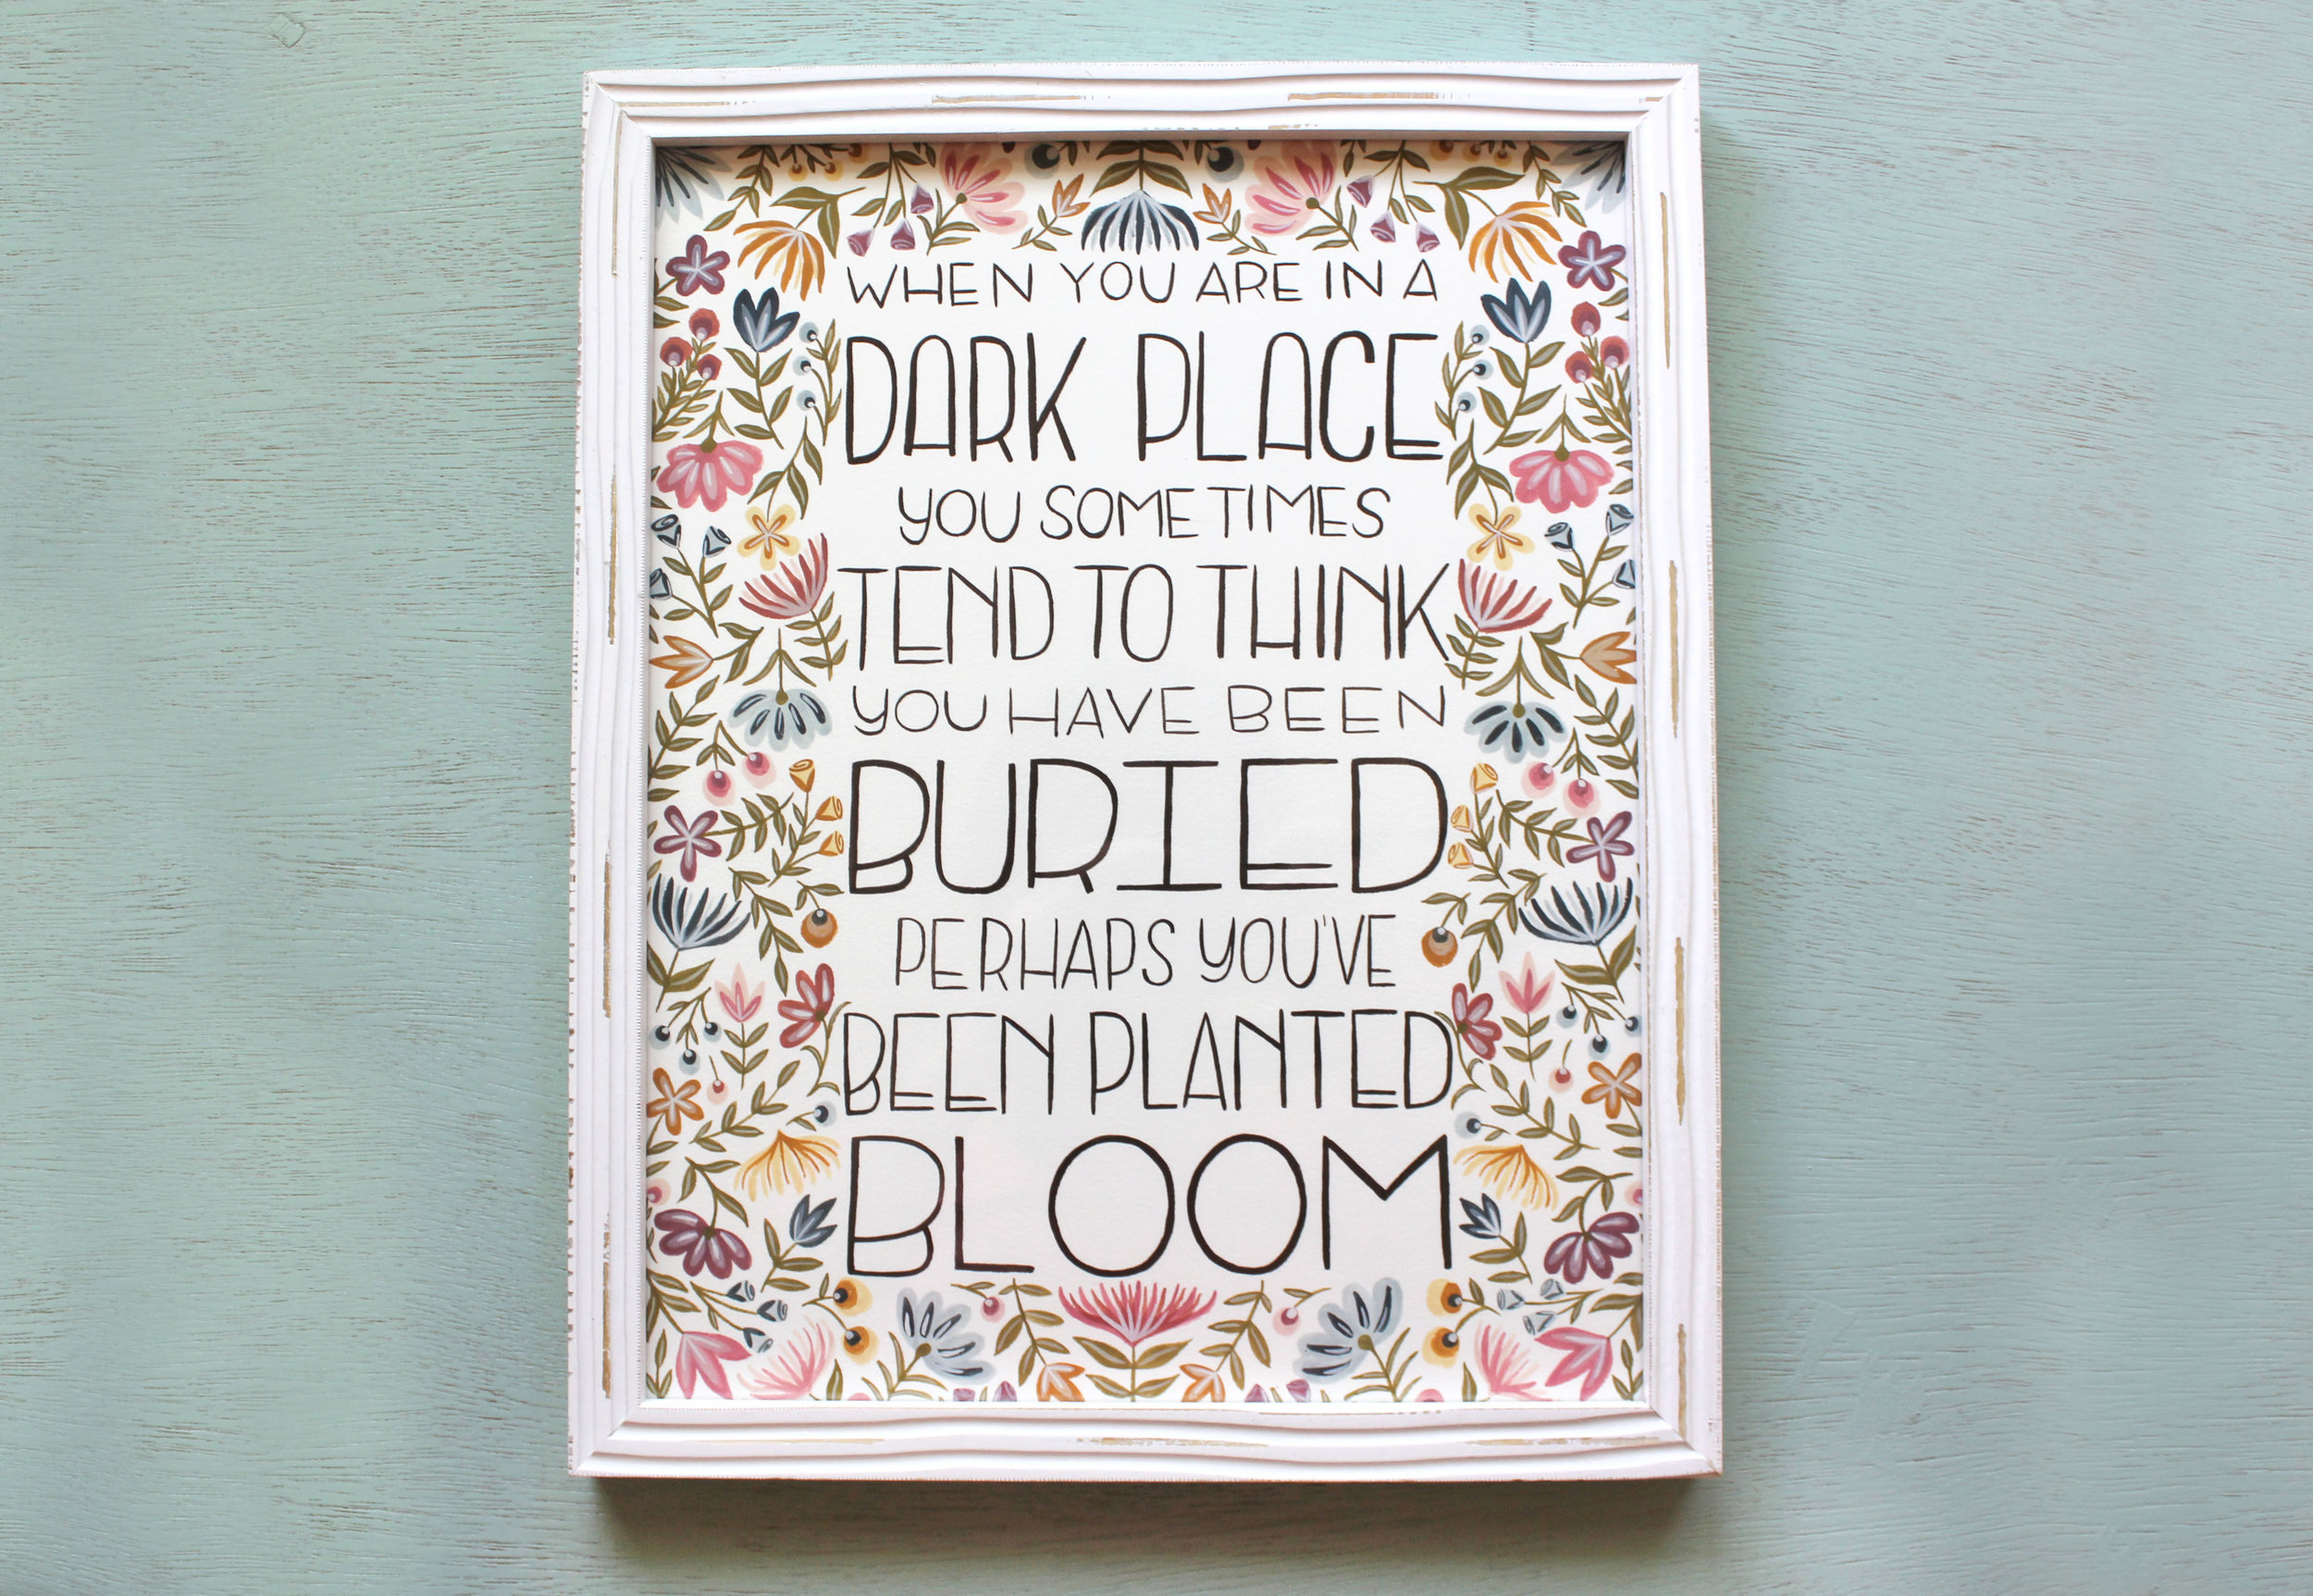 WHEN YOU ARE IN A
DARK PLACE
YOU SOMETIMES
TEND TO THINK
YOU HAVE BEEN
BURIED
PERHAPS YOU'VE
BEEN PLANTED
BLOOM